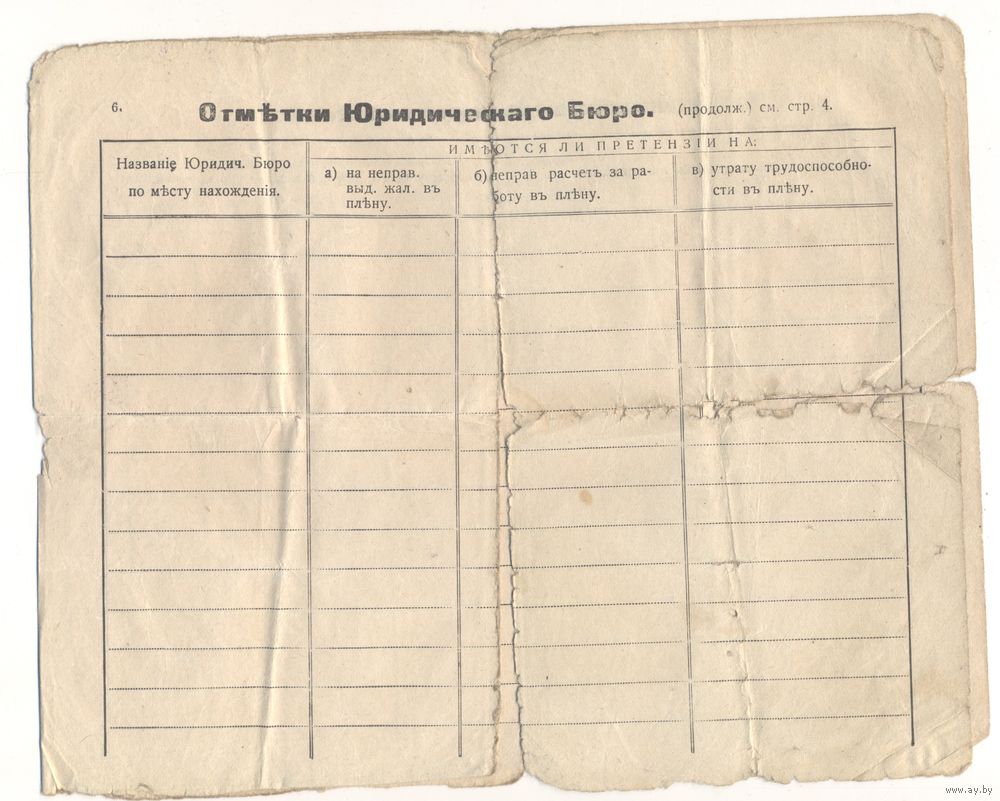 6.
Отмѣтки Юридическаго Бюро. (продолж.) см. стр. 4.
ИМѢЮТСЯ ЛИ ПРЕТЕНЗІИ НА:
Названіе Юридич. Бюро
по мѣсту нахожденія.
а) на неправ.
выд. жал. въ
плѣну.
б) неправ расчетъ за ра-
боту въ плѣну.
в) утрату трудоспособно-
сти въ плѣну.
www.ay.by